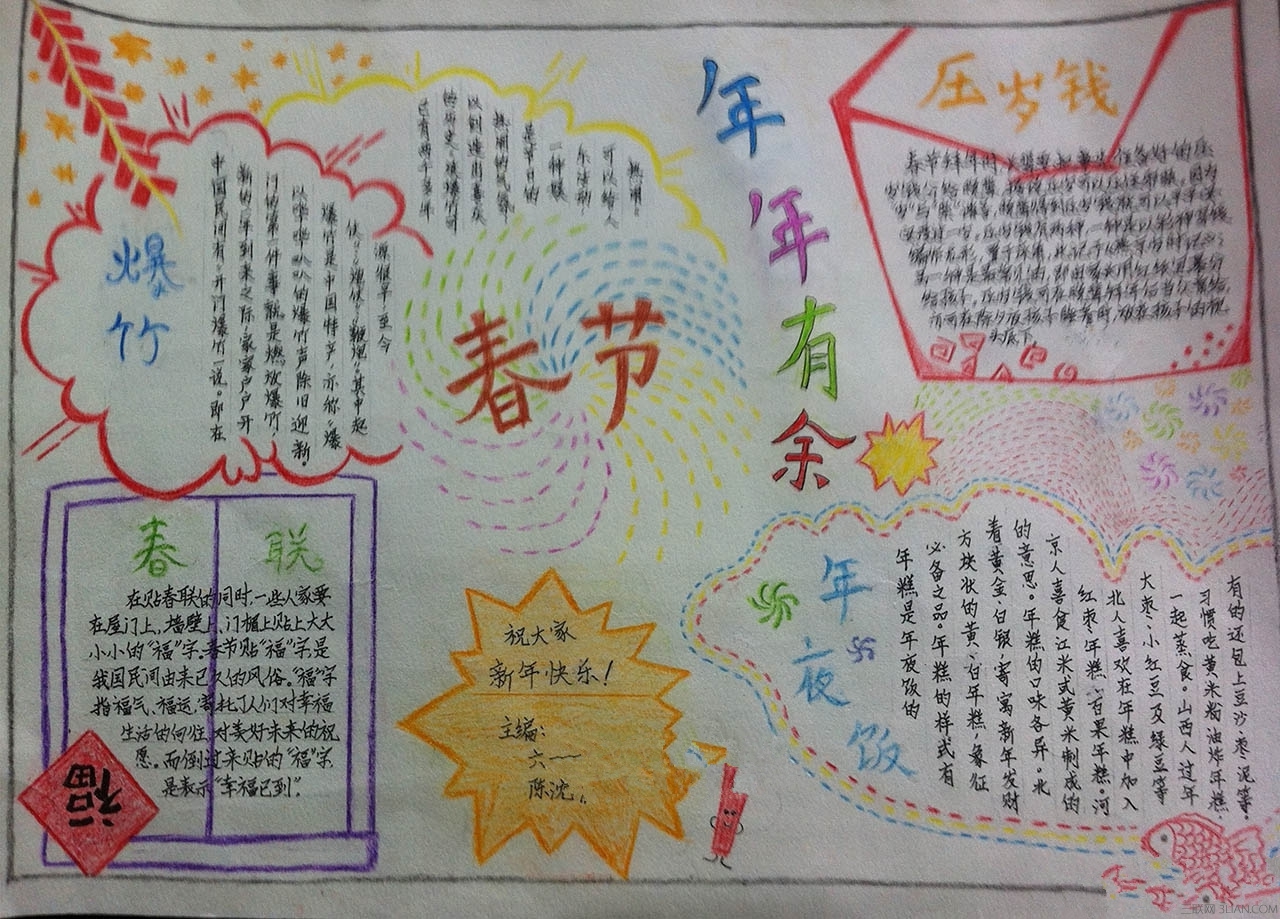 爆竹
中国民间有“开门爆竹”一说。即在
新的一年到来之际，家家户户开
门的第一件事就是燃放爆竹，
以哔哔叭叭的爆竹声除旧迎新。
爆竹是中国特产，亦称“爆
仗”、“炮仗”、“鞭炮”。其中起
源很早，至今
已有两千多年
的历史。放爆竹可
以创造出喜庆
热闹的气氛，
是节日的
一种娱
乐活动，
可以给人
热闹。
春节
年年有余
压岁钱
春节拜年时，长辈要把事先准备好的压
岁钱分给晚辈，据说压岁可以压住邪祟，因为
“岁”与“祟”谐音，晚辈得到压岁钱就可以平平安
安度过一岁。压岁钱有两种，一种是以彩绳穿线
编作龙形，置于床脚，此记于《燕京岁时记》；
另一种是最常见的，即由家长用红纸包裹分
给孩子。压岁钱可在晚辈拜年后当众赏给，
亦可在除夕夜孩子睡着时，放在孩子的枕
头底下。
春联
在贴春联的同时，一些人家要
在屋门上，墙壁上，门楣上贴上大大
小小的“福”字。春节贴“福”字是
我国民间由来已久的风俗。“福”字
指福气、福运，寄托了人们对幸福
生活的向往，对美好未来的祝
愿。而倒过来贴的“福”字
是表示“幸福已到”。
福
祝大家
新年快乐！
主编：
六一一
陈沈
年夜饭
年糕是年夜饭的
必备之品。年糕的样式有
方块状的黄、白年糕，象征
着黄金、白银，寄寓新年发财
的意思。年糕的口味各异。北
京人喜食江米或黄米制成的
红枣年糕、百果年糕。河
北人喜欢在年糕中加入
大枣、小红豆及绿豆等
一起蒸食。山西人过年
习惯吃黄米粉油炸年糕，
有的还包上豆沙、枣泥等。
三联网 3LIAN.COM